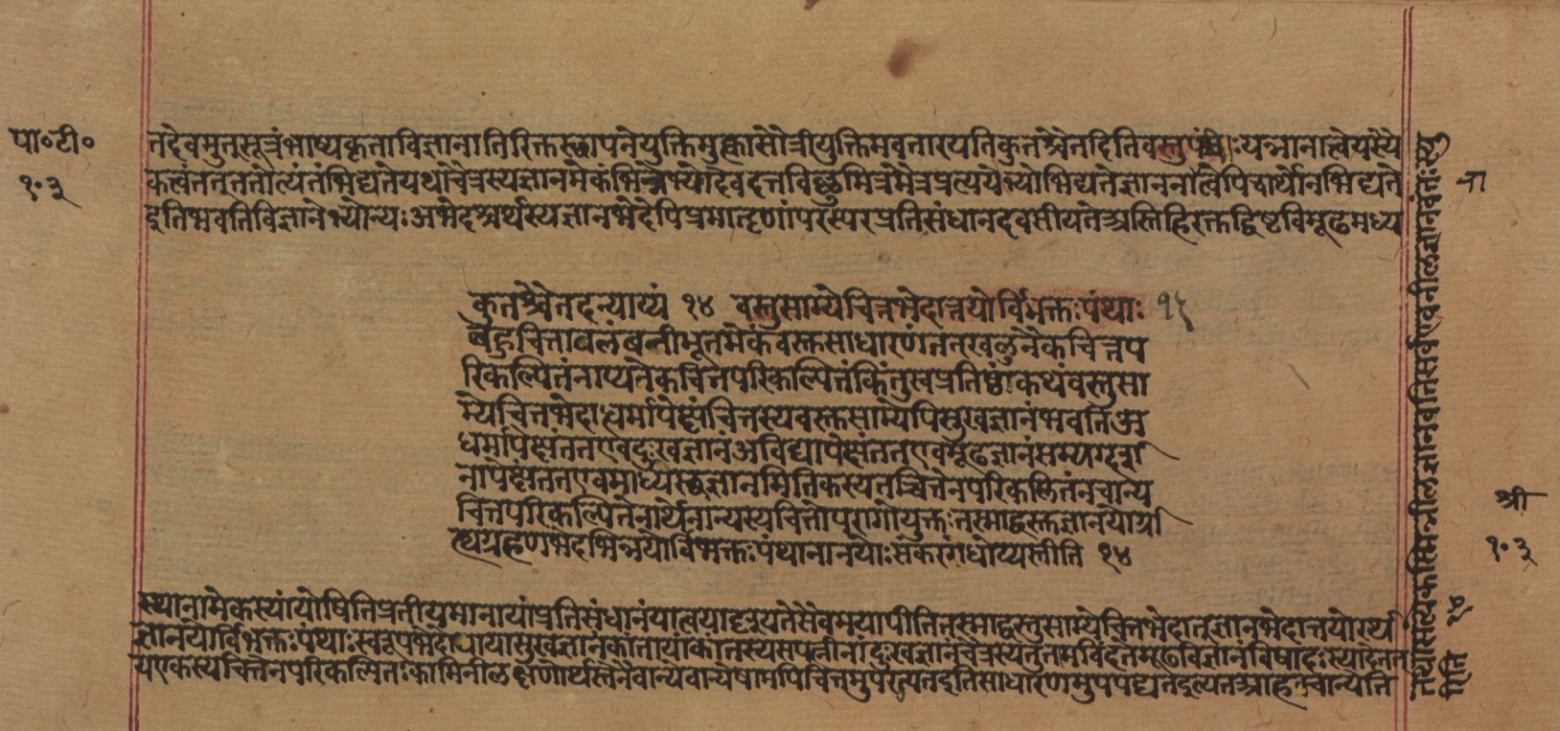 पा॰टी॰
१०३
तदेवमुत्सूत्रंभाष्यकृताविज्ञानातिरिक्तस्थापनेयुक्तिमुक्त्वासौत्रीयुक्तिमवतारयतिकुतश्चैतदितिवस्तु यन्नानात्वेयस्यै
कत्वंतत्ततोत्यंतंभिद्यतेयथाचैत्रस्यज्ञानमेकंभिन्नेभ्योदेवदत्तविष्णुमित्रमैत्रप्रत्ययेभ्योभिद्यतेज्ञाननानात्वेपिचार्थोनभिद्यते
इतिभवतिविज्ञानेभ्योन्यःअभेदअर्थस्यज्ञानभेदेपिप्रमातृणांपरस्परप्रतिसंधानदवसीयतेअस्तिहिरक्तद्विष्टविमूढमध्य
कुतश्चैतदन्याय्यं १४ वस्तुसाम्येचित्तभेदात्तयोर्विभक्तःपंथाः १५
बहुचित्तावलंबनीभूतमेकंवस्तुसाधारणंतत्खलुनैकचित्तप
रिकल्पितंनाप्यनेकचित्तपरिकल्पितंकिंतुस्वप्रतिष्ठंकथंवस्तुसा
म्येचित्तभेदाद्धर्मापेक्षंचित्तस्यवस्तुसाम्येपिसुखज्ञानंभवतिअ
धर्मापेक्षंततएवदुःखज्ञानंअविद्यापेक्षंततएवमूढज्ञानंसम्यग्दर्श
नापेक्षंततएवमाध्यस्थ्यज्ञानमितिकस्यतच्चित्तेनपरिकल्पितंनचान्य
चित्तपरिकल्पितेनार्थेनान्यस्यचित्तोपरागोयुक्तःतस्माद्वस्तुज्ञानयोर्ग्रा
ह्यग्रहणभेदभिन्नयोर्विभक्तःपंथानानयोःसंकरगंधोप्यस्तीति १४
स्थानामेकस्यांयोषितिप्रतीयमानायांप्रतिसंधानंयात्वयादृश्यतेसैवमयापीतितस्माद्वस्तुसाम्येचित्तभेदात्ज्ञानभेदात्तयोरर्थ
ज्ञानयोर्विभक्तःपंथाःस्वरूपभेदोपायासुखज्ञानंकांतायांकांतस्यसपत्नीनांदुःखज्ञानंचैत्रस्यतुतामविंदतमूढविज्ञानंविषादःस्यादेतत्
यएकस्यचित्तेनपरिकल्पितःकामिनीलक्षणोर्थस्तेनैवान्येषामपिचित्तमुपरज्यतइतिसाधारणमुपपद्यतेइत्यतआहनचान्यचि
श्री
१०३
तथासत्येकस्मिन्नीलज्ञानवतिसर्वएवनीलज्ञानवंतःस्यु
रिति